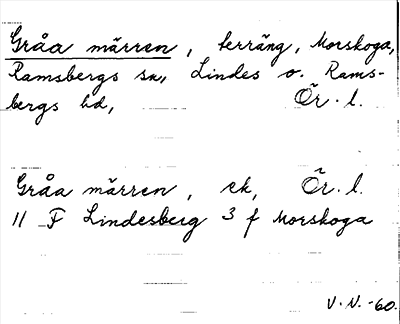 Gråa märren, terräng, Morskoga,
Ramsbergs sn, Lindes o. Rams-
bergs hd, Ör. l.
Gråa märren, ek, Ör. l.
11 F Lindesberg 3 f Morskoga
V. N. -60.